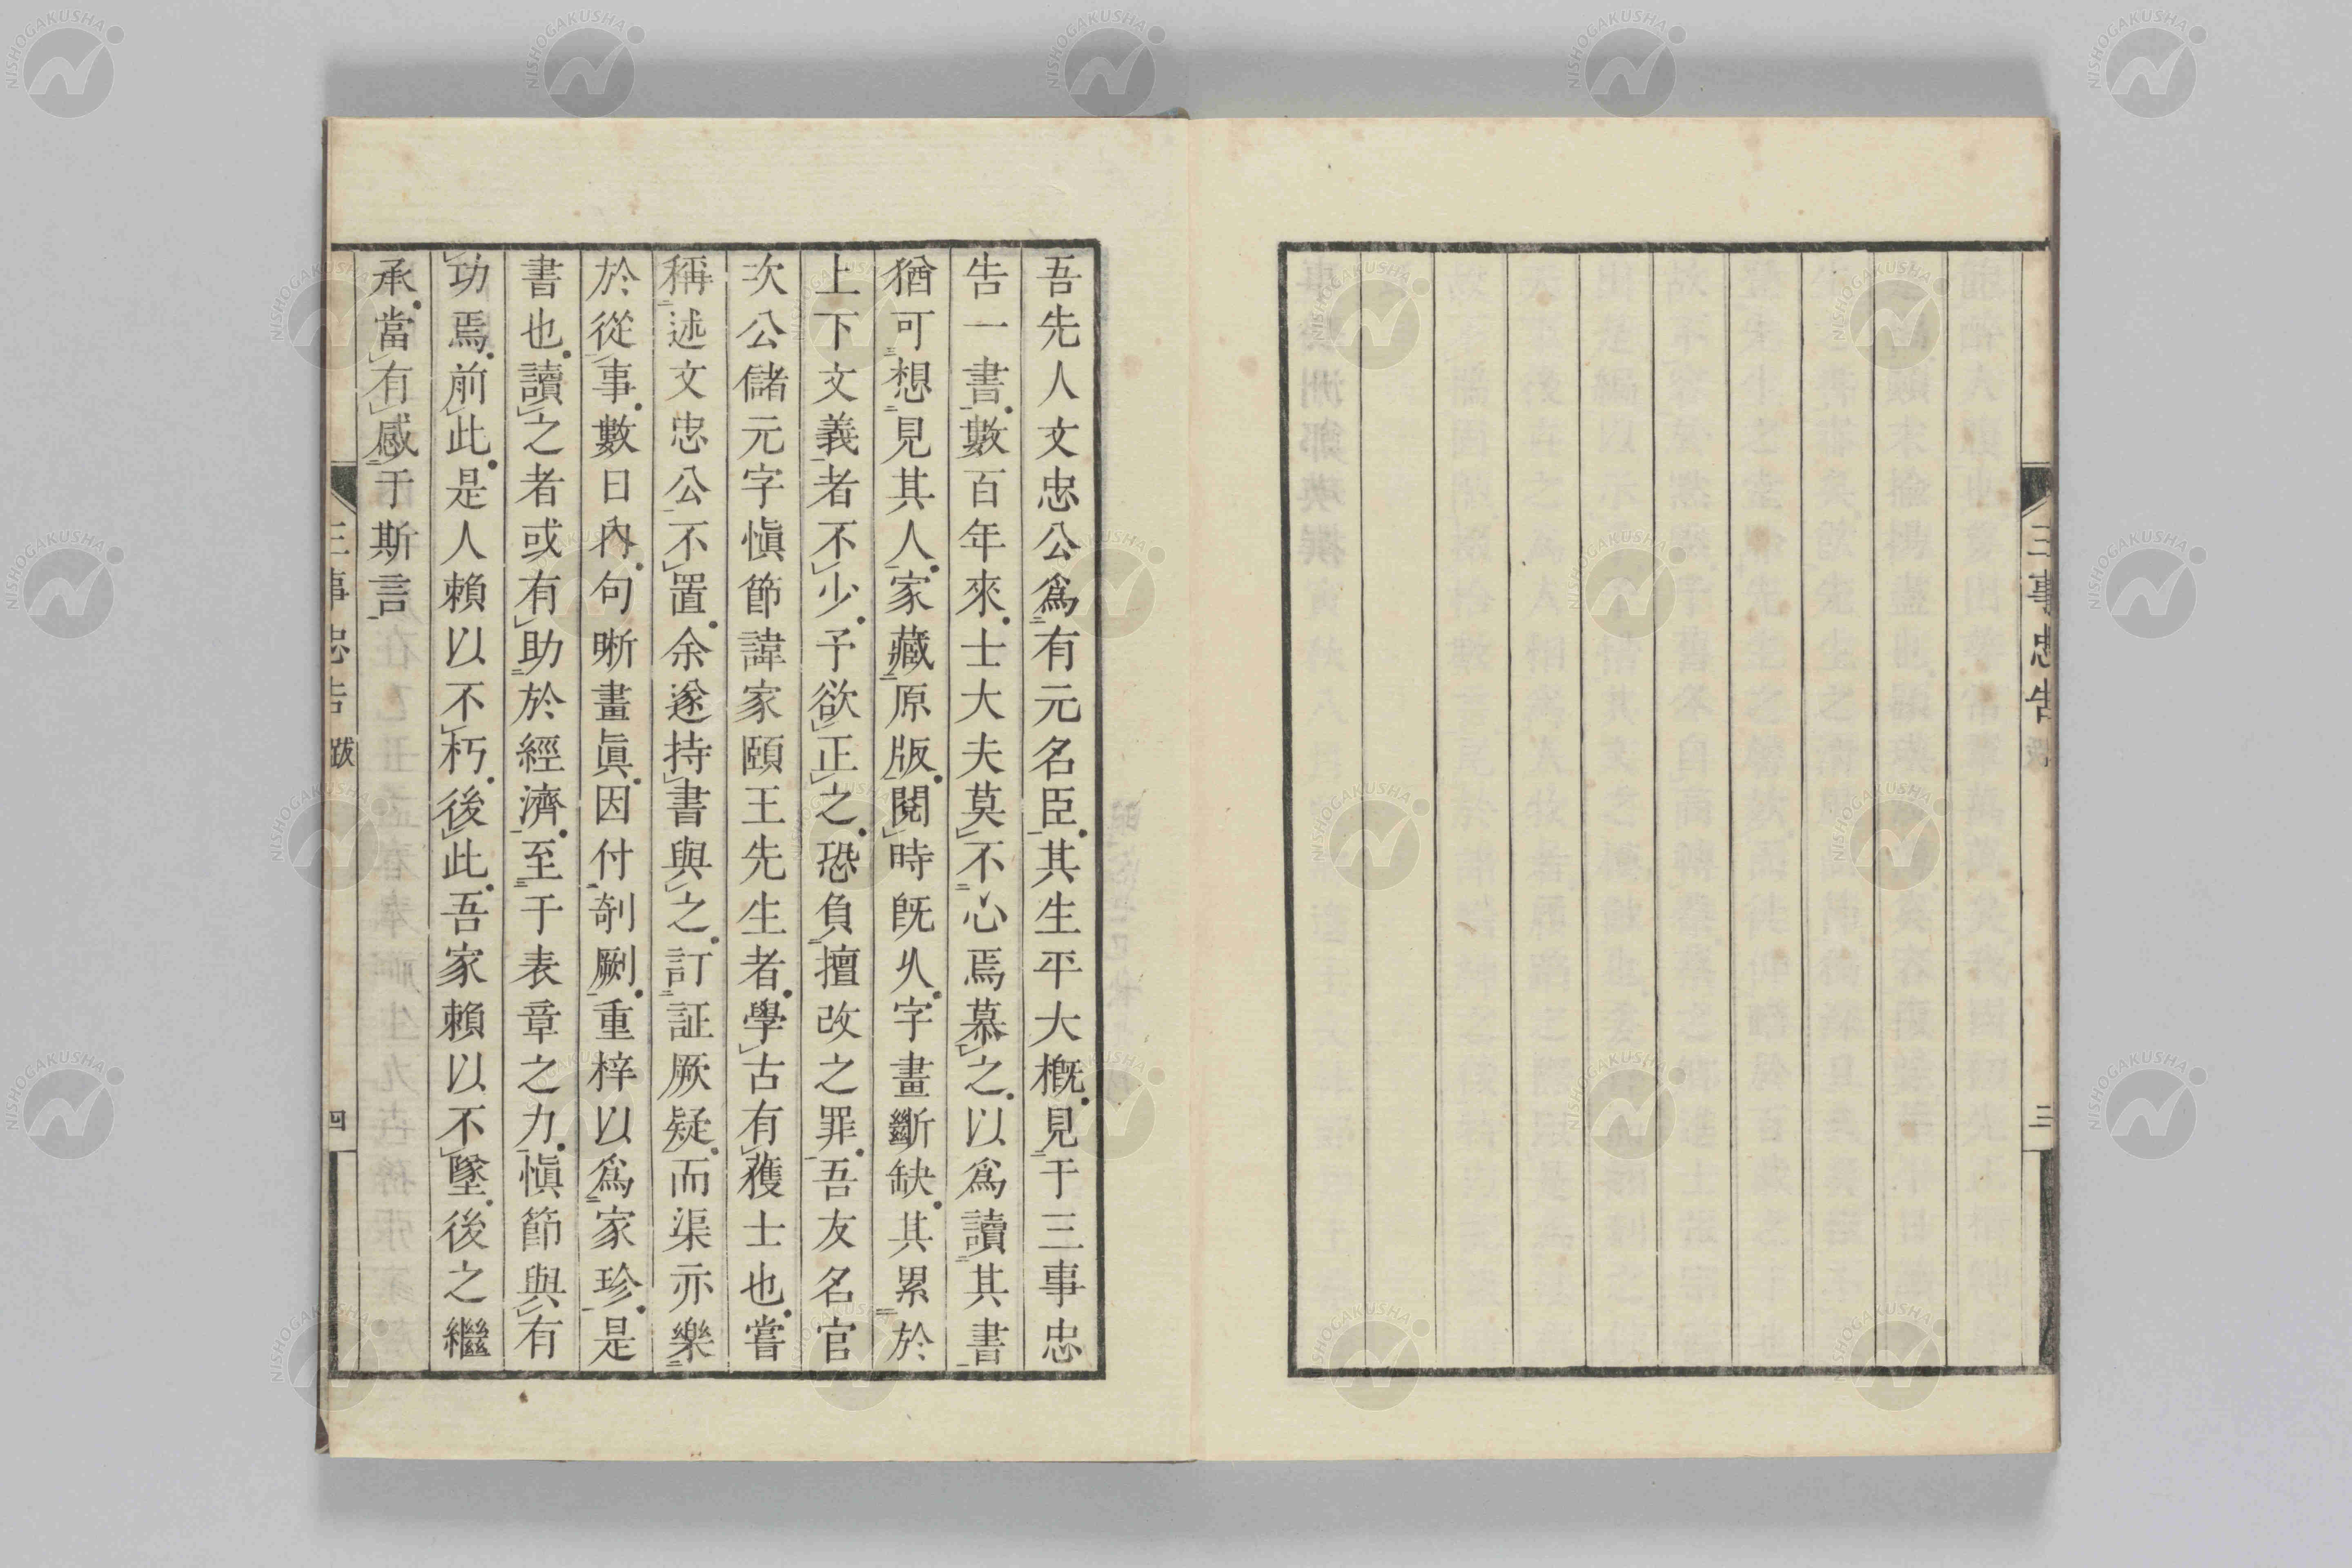 三事忠告
三
吾先人文忠公爲有元名臣其生平大槪見于三事忠
告一書數百年來士大夫莫不心焉慕之以爲讀其書
猶可想見其人家藏原版閱時旣久字畫斷缺其累於
上下文義者不少予欲正之恐負擅改之罪吾友名官
次公儲元字愼節諱家頤王先生者學古有獲士也嘗
稱述文忠公不置余遂持書與之訂証厥疑而渠亦樂
於從事數日內句晰畫眞因付剞劂重梓以爲家珍是
書也讀之者或有助於經濟至于表章之力愼節與有
功焉前此是人賴以不朽後此吾家賴以不墜後之繼
承當有感于斯言
三事忠告 跋
四
NISHOGAKUSHA